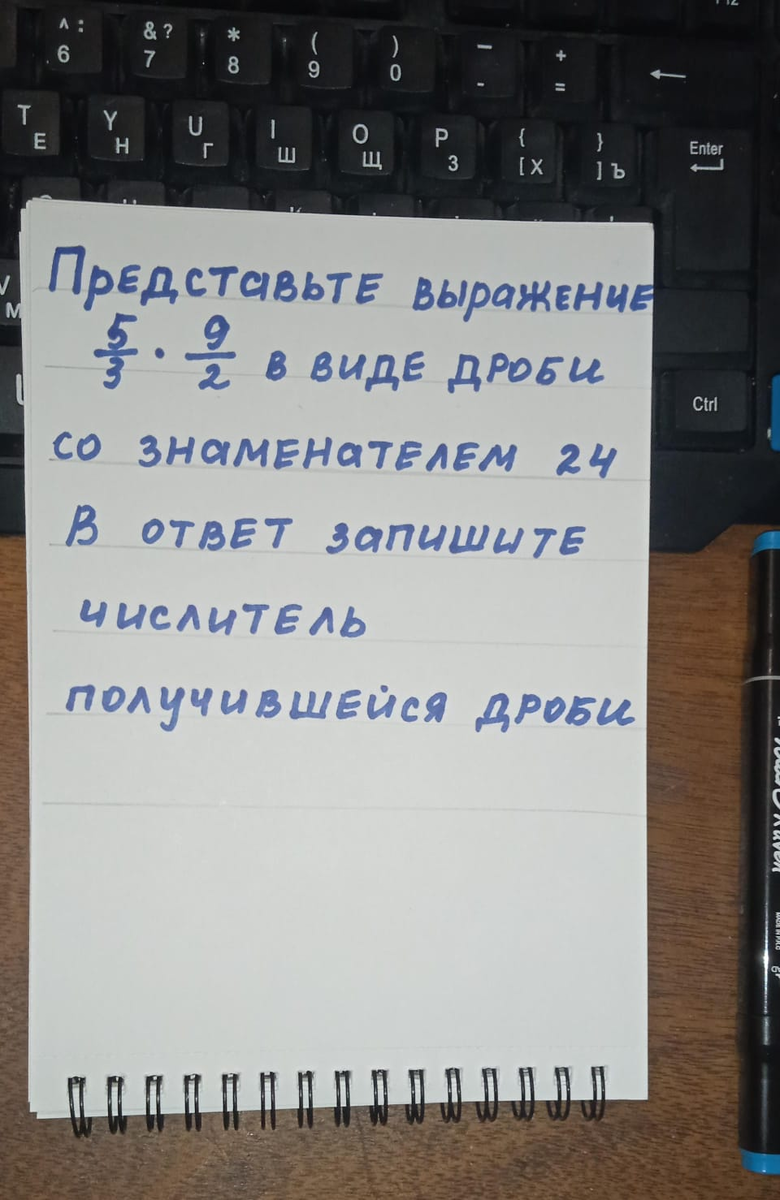 ^ :
6
& ?
7
*
8
(
9
)
0
_
-
+
=
←
T
Е
Y
Н
U
Г
I
Ш
O
Щ
P
З
{
[ Х
}
] Ъ
Enter
Представьте выражение
5/3 · 9/2 в виде дроби
со знаменателем 24
В ответ запишите
числитель
получившейся дроби
Ctrl
V
М